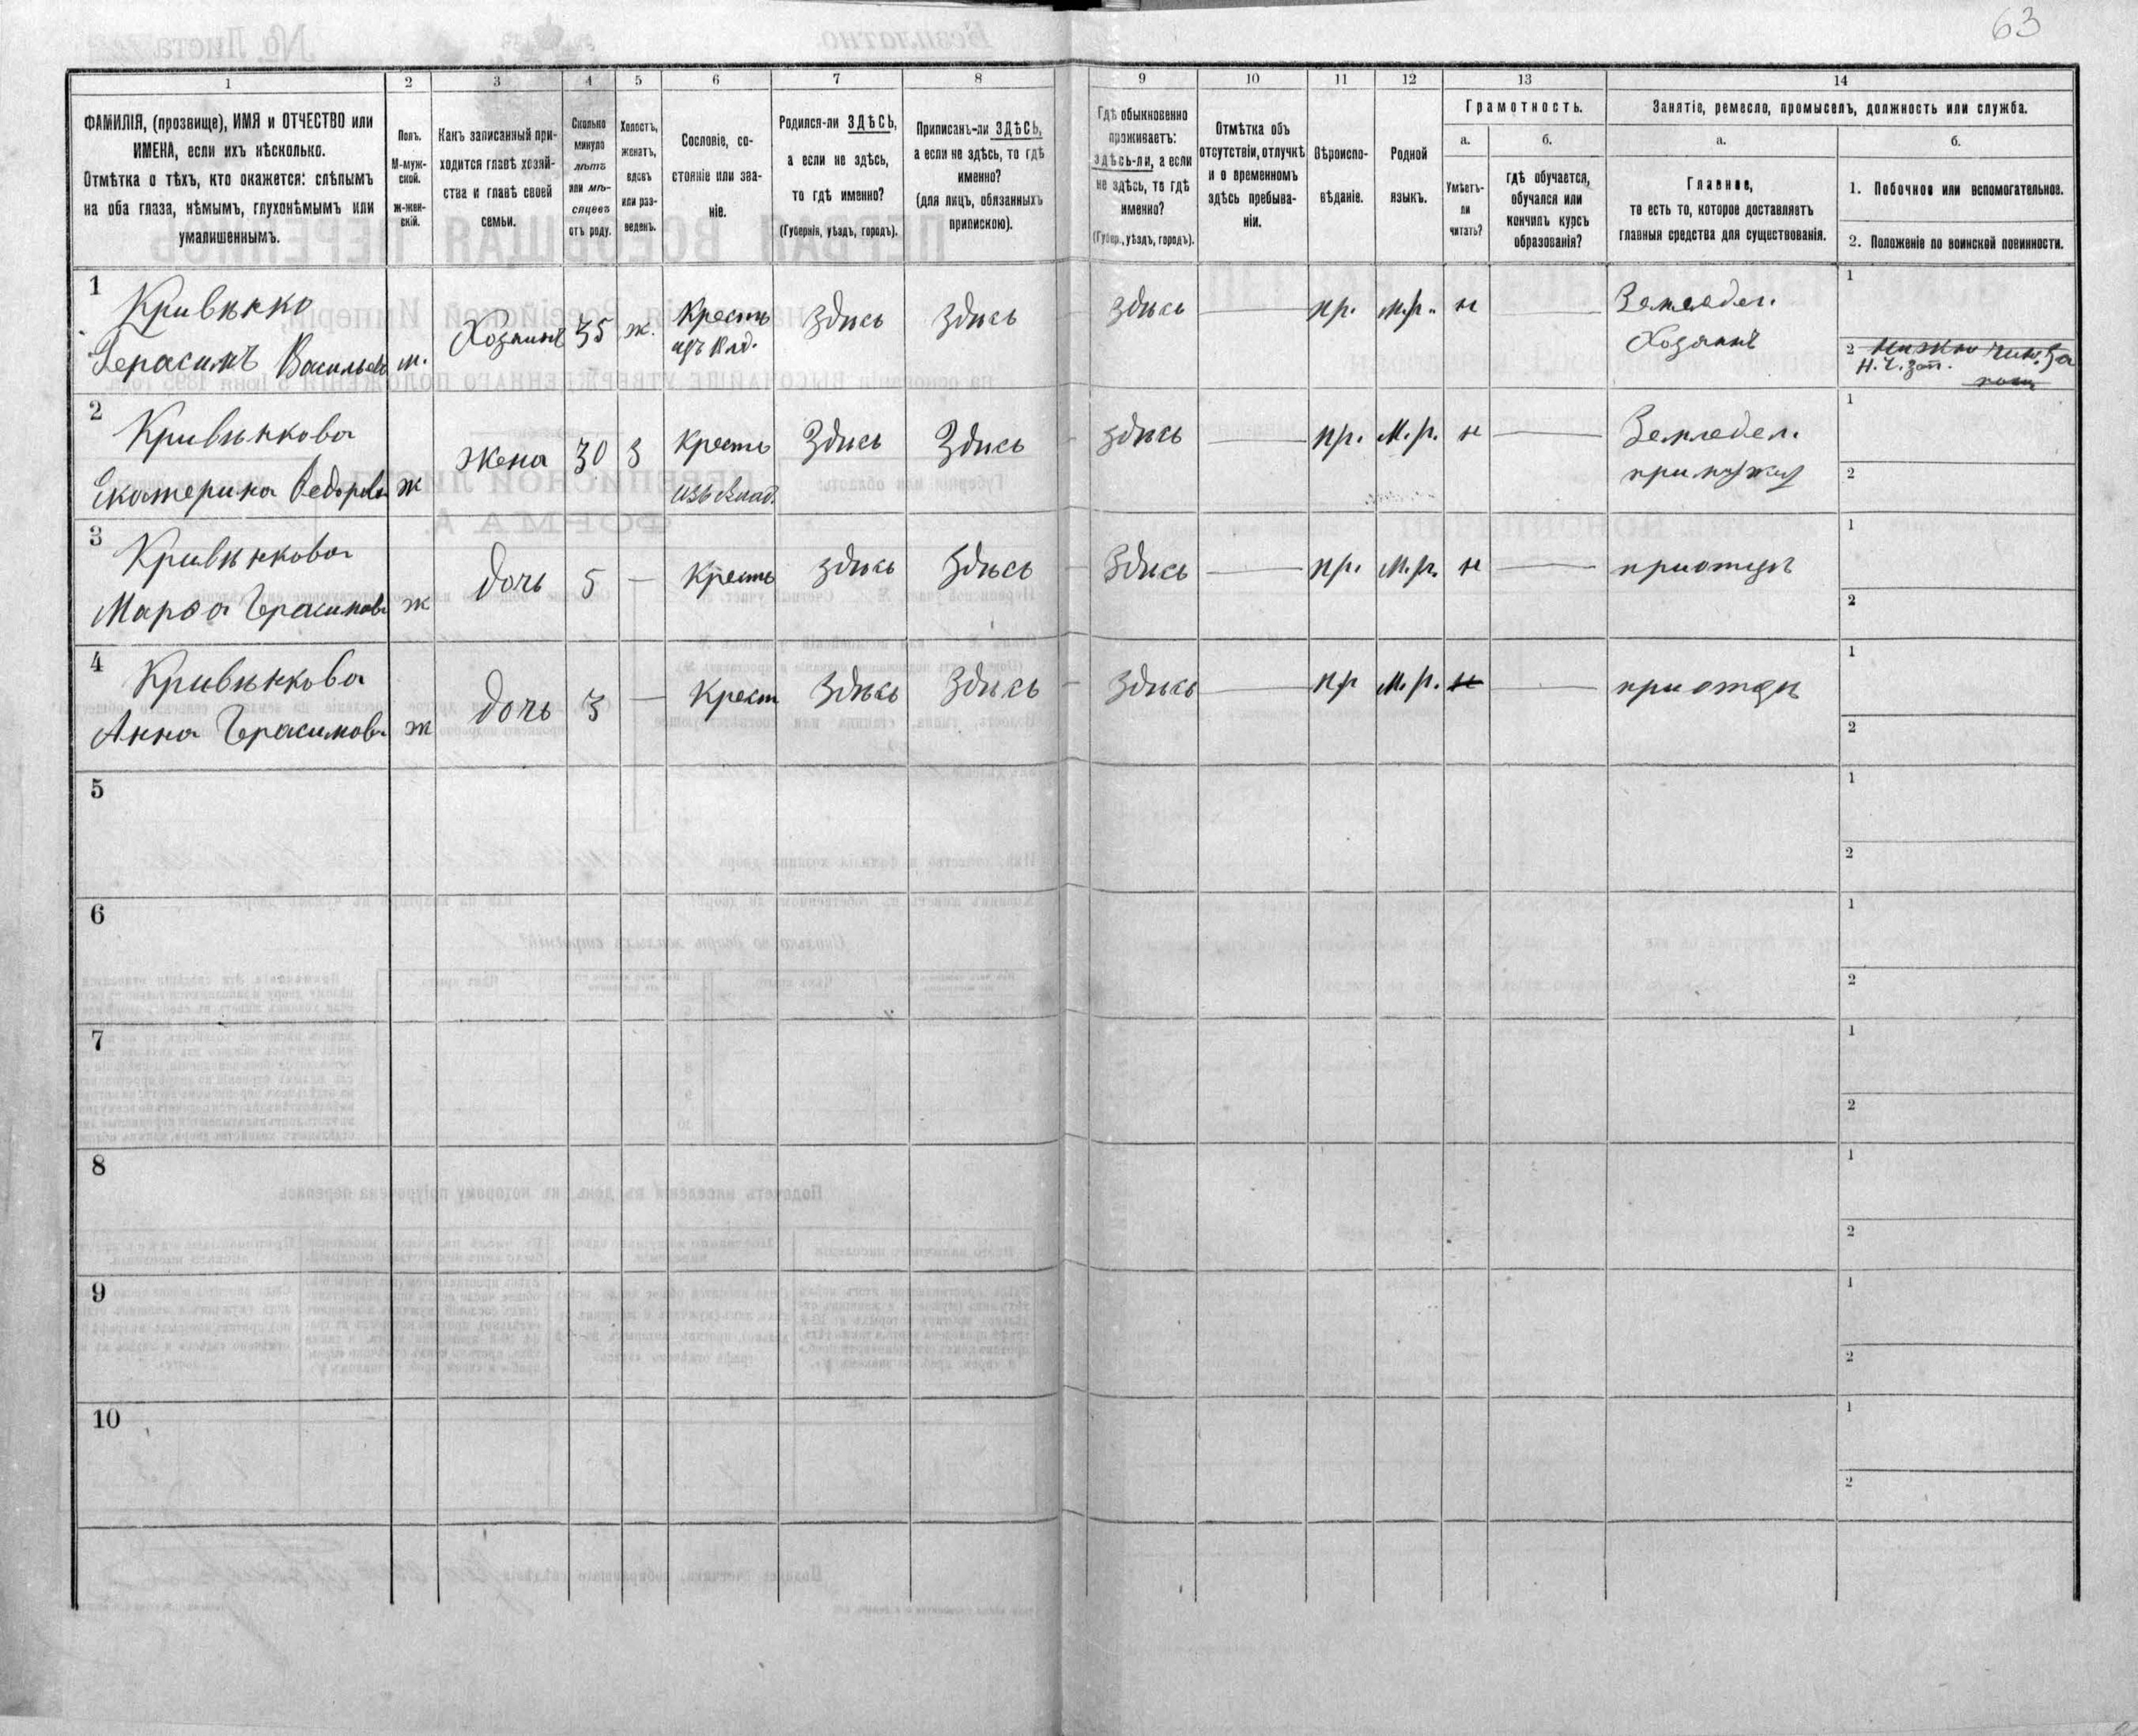 63
1
2
3
4
5
6
7
8
9
10
11
12
13
14
ФАМИЛІЯ, (прозвище), ИМЯ и ОТЧЕСТВО или
ИМЕНА, если ихъ нѣсколько.
Отмѣтка о тѣхъ, кто окажется: слѣпымъ
на оба глаза, нѣмымъ, глухонѣмымъ или
умалишеннымъ.
Полъ.
М-муж-
ской.
ж-жен-
скій.
Какъ записанный при-
ходится главѣ хозяй-
ства и главѣ своей
семьи.
Сколько
минуло
лѣтъ
или мѣ-
сяцевъ
отъ роду.
Холостъ,
женатъ,
вдовъ
или раз-
веденъ.
Сословіе, со-
стояніе или зва-
ніе.
Родился-ли ЗДѢСЬ,
а если не здѣсь,
то гдѣ именно?
(Губернія, уѣздъ, городъ).
Приписанъ-ли ЗДѢСЬ,
а если не здѣсь, то гдѣ
именно?
(для лицъ, обязанныхъ
припискою).
Гдѣ обыкновенно
проживаетъ:
здѣсь-ли, а если
не здѣсь, то гдѣ
именно?
(Губер., уѣздъ, городъ).
Отмѣтка объ
отсутствіи, отлучкѣ
и о временномъ
здѣсь пребыва-
ніи.
Вѣроиспо-
вѣданіе.
Родной
языкъ.
Грамотность.
а.
Умѣетъ-
ли
читать?
б.
гдѣ обучается,
обучался или
кончилъ курсъ
образованія?
Занятіе, ремесло, промыселъ, должность или служба.
а.
Главное,
то есть то, которое доставляетъ
главныя средства для существованія.
б.
1. Побочное или вспомогательное.
2. Положеніе по воинской повинности.
1
Кривѣнко
Герасимъ Васильев м. Хозяинъ 35 ж. Кресть
изъ влад. здѣсь здѣсь здѣсь пр. м.р. н Земледел.
Хозяинъ
1
2
Н.Ч. зап.
2
Кривѣнкова
Екатерина Федорова ж жена 30 з Кресть
изъ влад. Здѣсь Здѣсь здѣсь пр. М.р. н Земледел.
при мужѣ
1
2
3
Кривѣнкова
Марѳа Герасимова ж дочь 5 — Кресть здѣсь здѣсь Здѣсь пр. М.р. н при отцѣ
1
2
4
Кривѣнкова
Анна Герасимова ж дочь 3 — Крест Здѣсь Здѣсь Здѣсь пр М.р. н при отцѣ
1
2
5
1
2
6
1
2
7
1
2
8
1
2
9
1
2
10
1
2